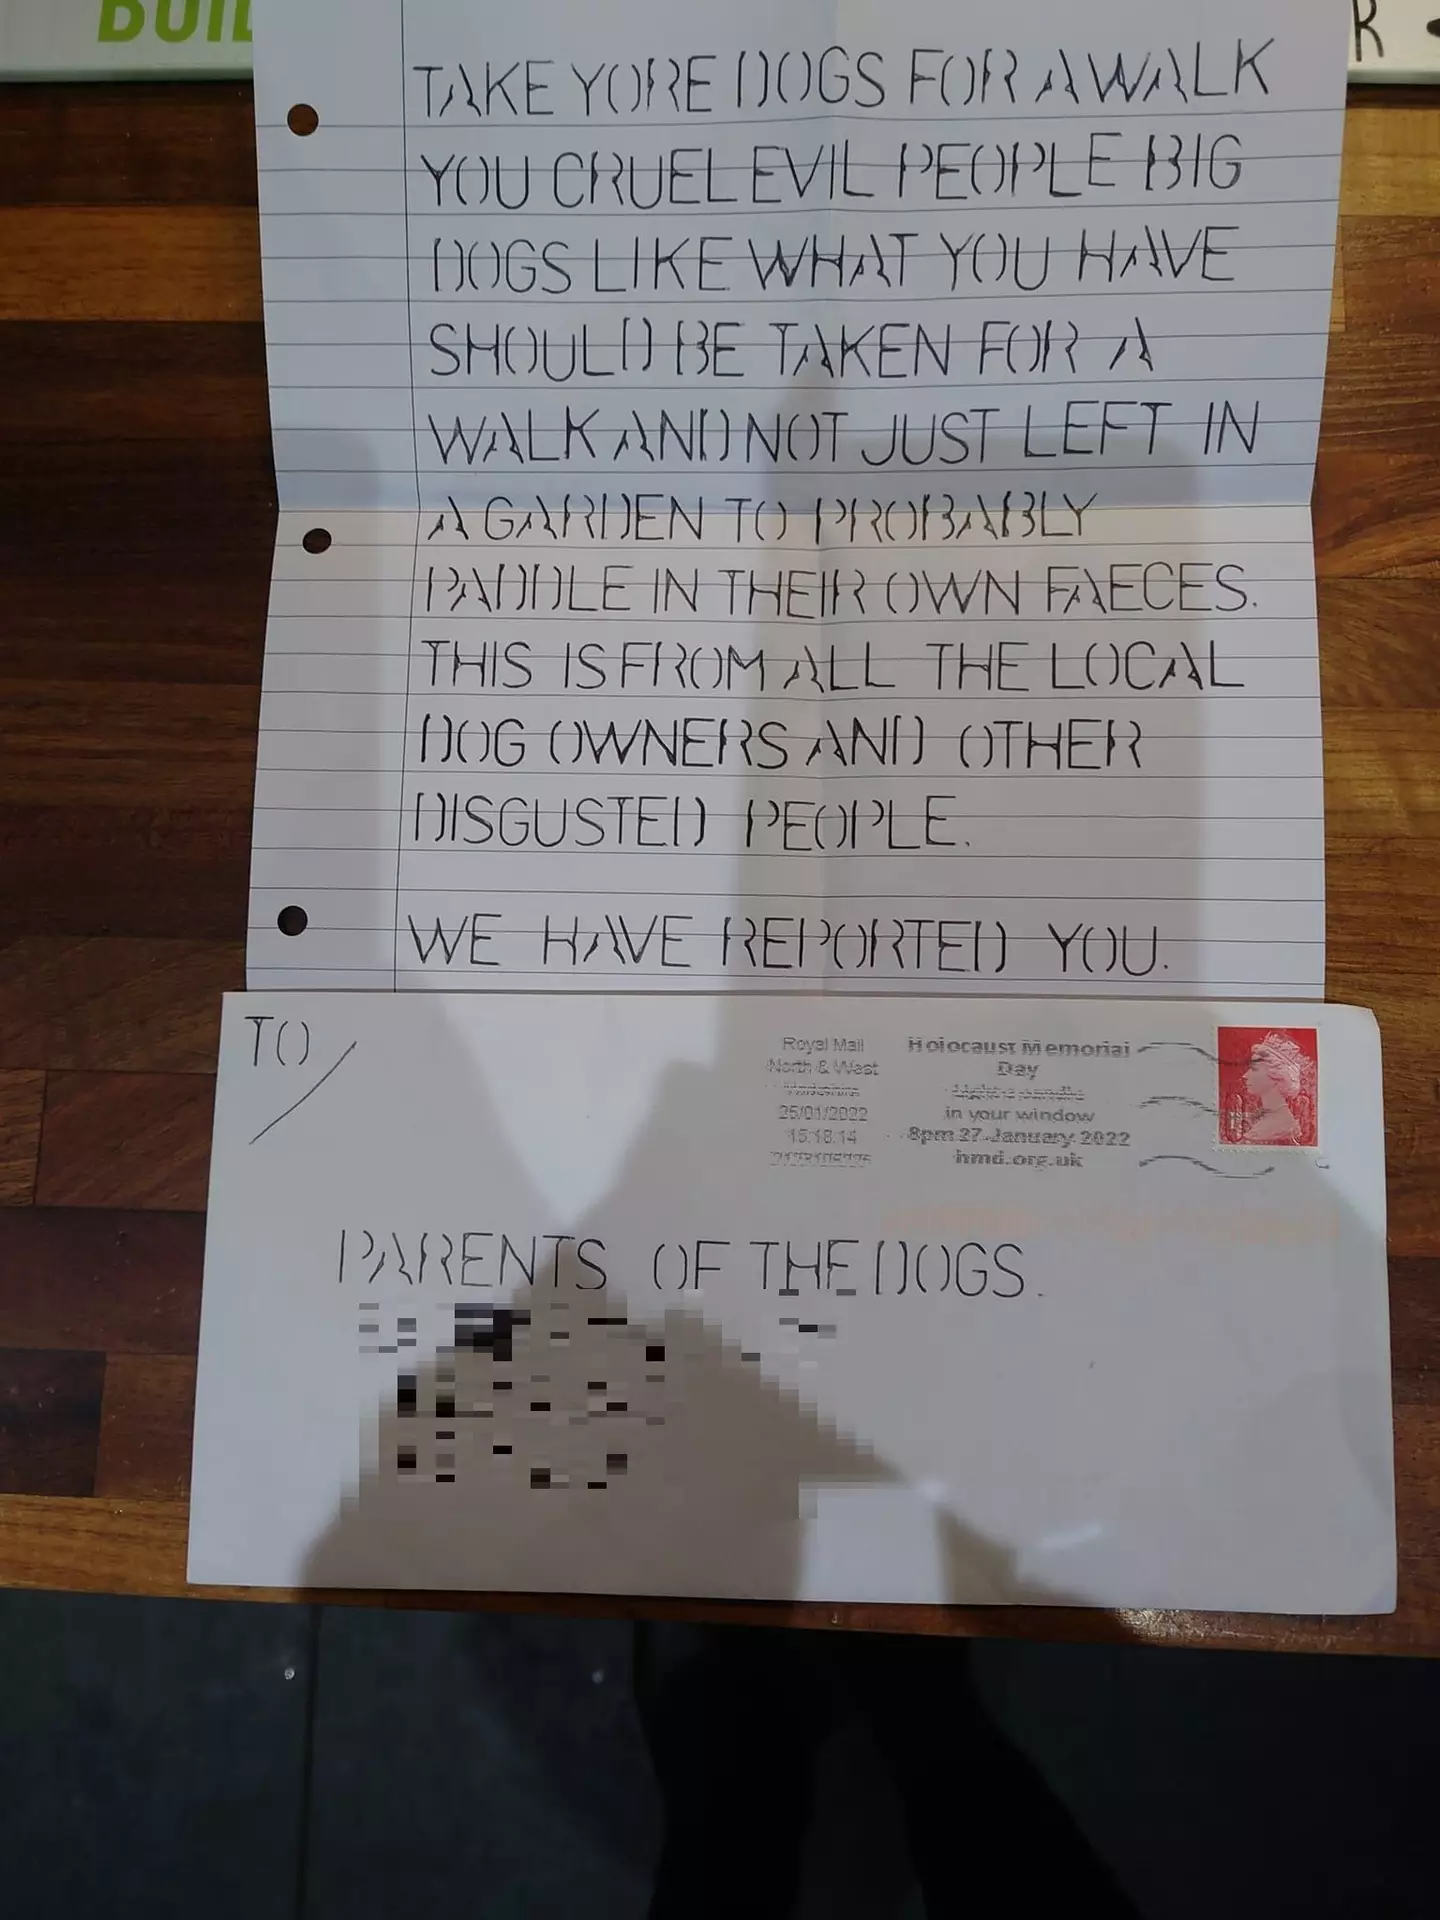 BUIL
R
TAKE YORE DOGS FOR A WALK
YOU CRUEL EVIL PEOPLE BIG
DOGS LIKE WHAT YOU HAVE
SHOULD BE TAKEN FOR A
WALK AND NOT JUST LEFT IN
A GARDEN TO PROBABLY
PADDLE IN THEIR OWN FAECES.
THIS IS FROM ALL THE LOCAL
DOG OWNERS AND OTHER
DISGUSTED PEOPLE.
WE HAVE REPORTED YOU.
TO
Royal Mail
North & West
25/01/2022
15:18:14
Holocaust Memorial
Day
in your window
8pm 27 January 2022
hmd.org.uk
PARENTS OF THE DOGS.